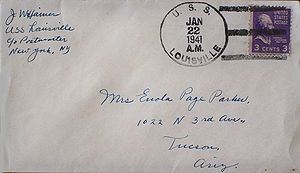 J W Hainer
USS Louisville
c/o Postmaster
New York, NY
U. S. S.
JAN
22
1941
A.M.
LOUISVILLE
UNITED STATES POSTAGE
3 CENTS 3
Mrs Enola Page Parker,
1022 N 3rd Ave.,
Tucson,
Ariz.